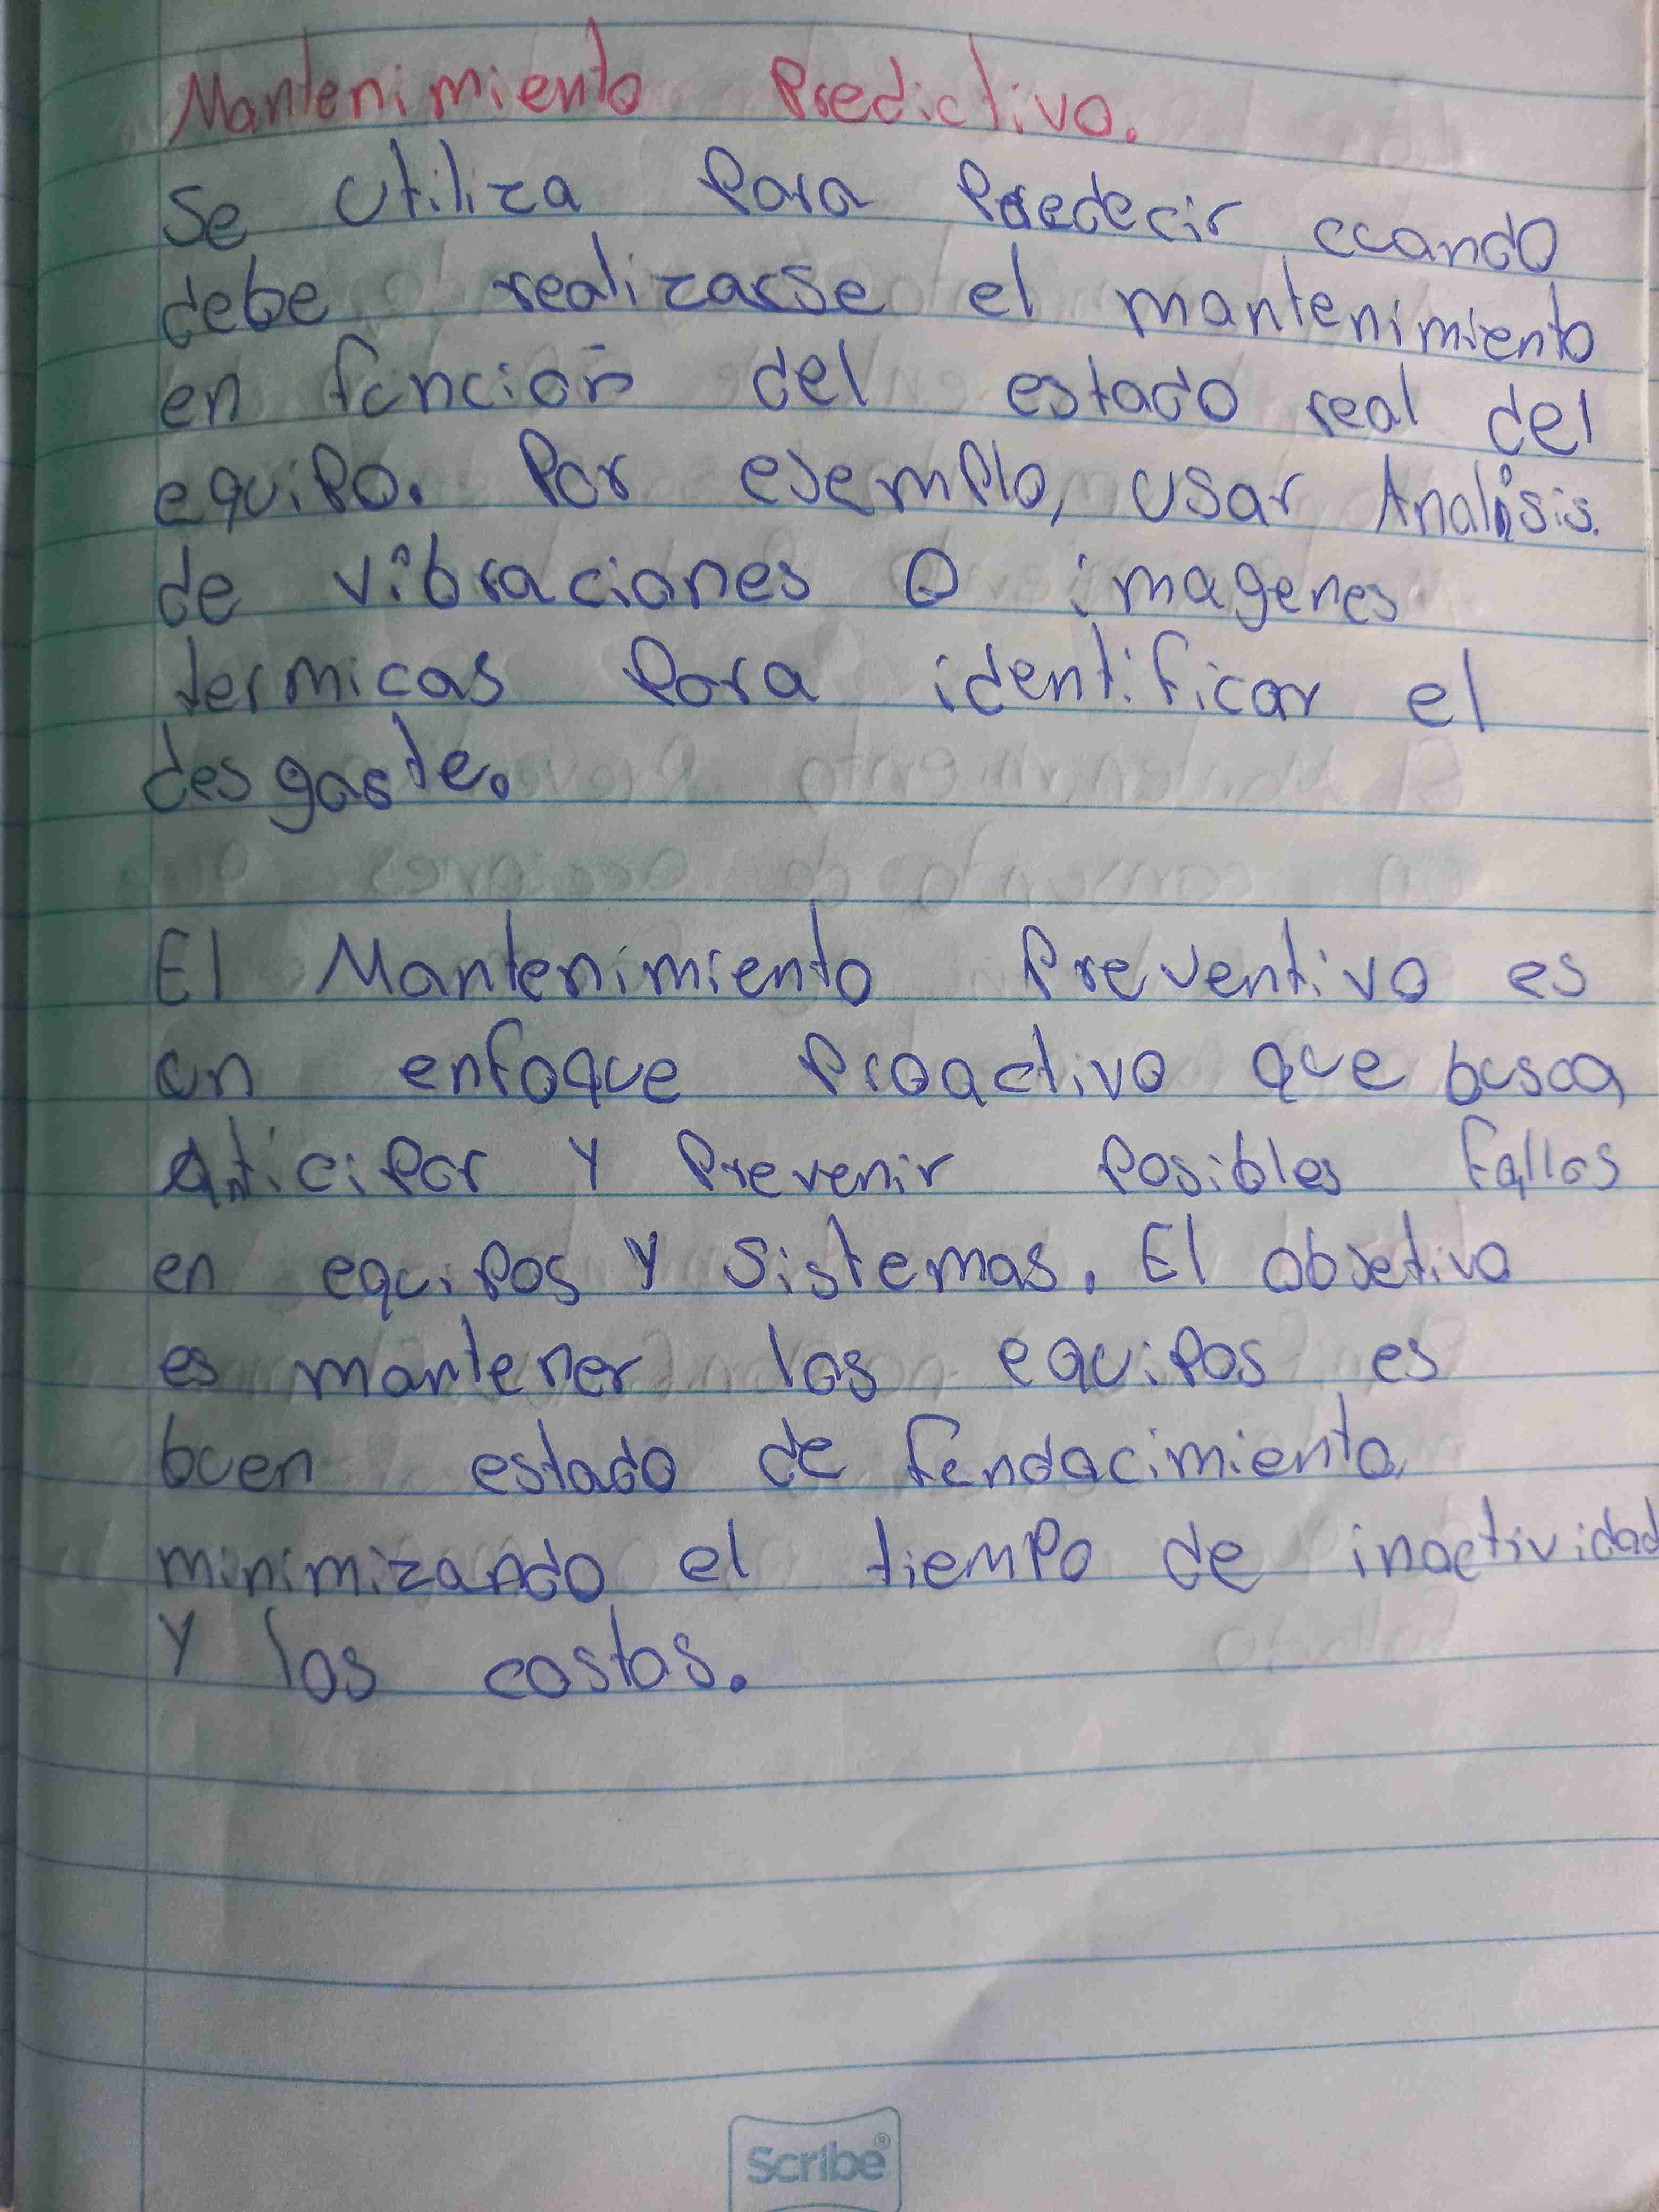 Mantenimiento Predictivo.
Se utiliza Para Predecir cuando
debe realizarse el mantenimiento
en función del estado real del
equipo. Por ejemplo, usar Analisis.
de vibraciones o imagenes
termicas Para identificar el
desgaste.
El Mantenimiento Preventivo es
un enfoque Proactivo que busca
anticipar y Prevenir Posibles fallos
en equipos y sistemas. El objetivo
es mantener los equipos es
buen estado de fundacimiento
minimizando el tiempo de inactividad
y los costos.
Scribe®